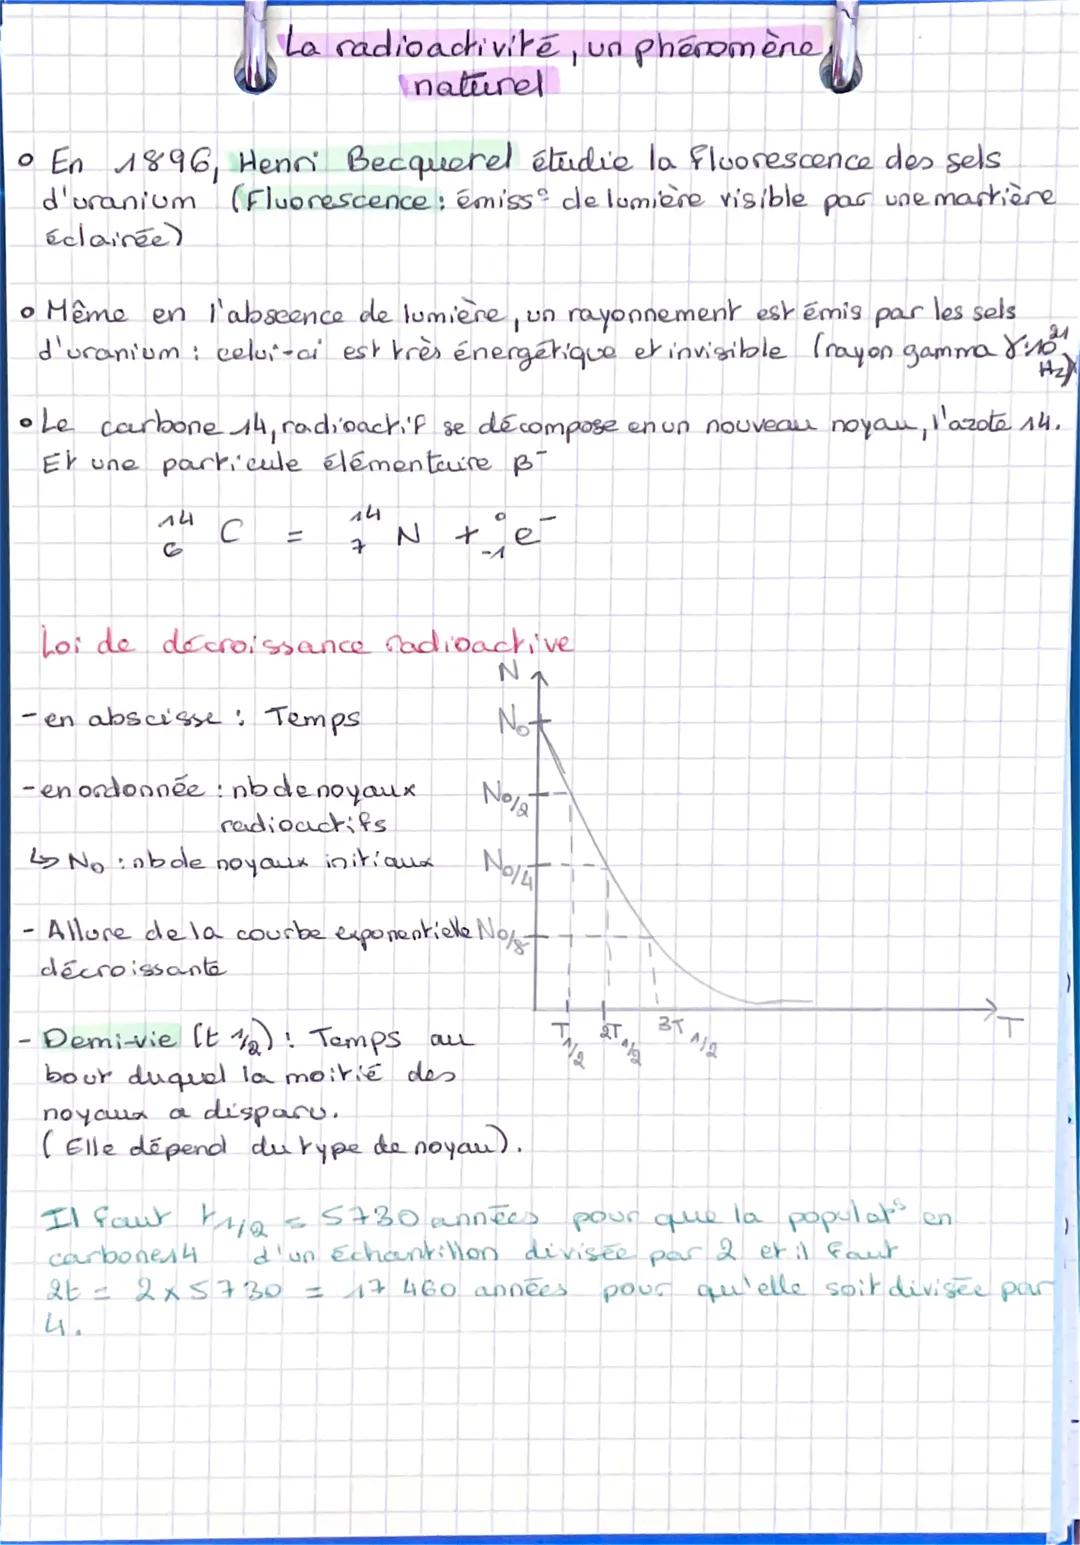 La radioactivité, un phénomène
naturel
° En 1896, Henri Becquerel étudie la fluorescence des sels
d'uranium (Fluorescence : émiss° de lumière visible par une martière
éclairée)
° Même en l'absceence de lumière, un rayonnement est émis par les sels
d'uranium : celui-ci est très énergétique et invisible (rayon gamma γ:10²¹
Hz)
• Le carbone 14, radioactif se décompose en un nouveau noyau, l'azote 14.
Et une particule élémentaire β⁻
¹⁴₆ C = ¹⁴₇ N + ⁰₋₁ e⁻
Loi de décroissance radioactive
N
- en abscisse : Temps
N₀
- en ordonnée : nb de noyaux
N₀/2
radioactifs
↳ N₀ : nb de noyaux initiaux
N₀/4
- Allure de la courbe exponentielle
N₀/8
décroissante
T 1/2 2T 1/2 3T 1/2
T
- Demi-vie (t 1/2) : Temps au
bout duquel la moitié des
noyaux a disparu.
( Elle dépend du type de noyau).
Il faut t1/2 = 5730 années pour que la populat° en
carbone14 d'un échantillon divisée par 2 et il faut
2t = 2 x 5730 = 17 460 années pour qu'elle soit divisée par
4.